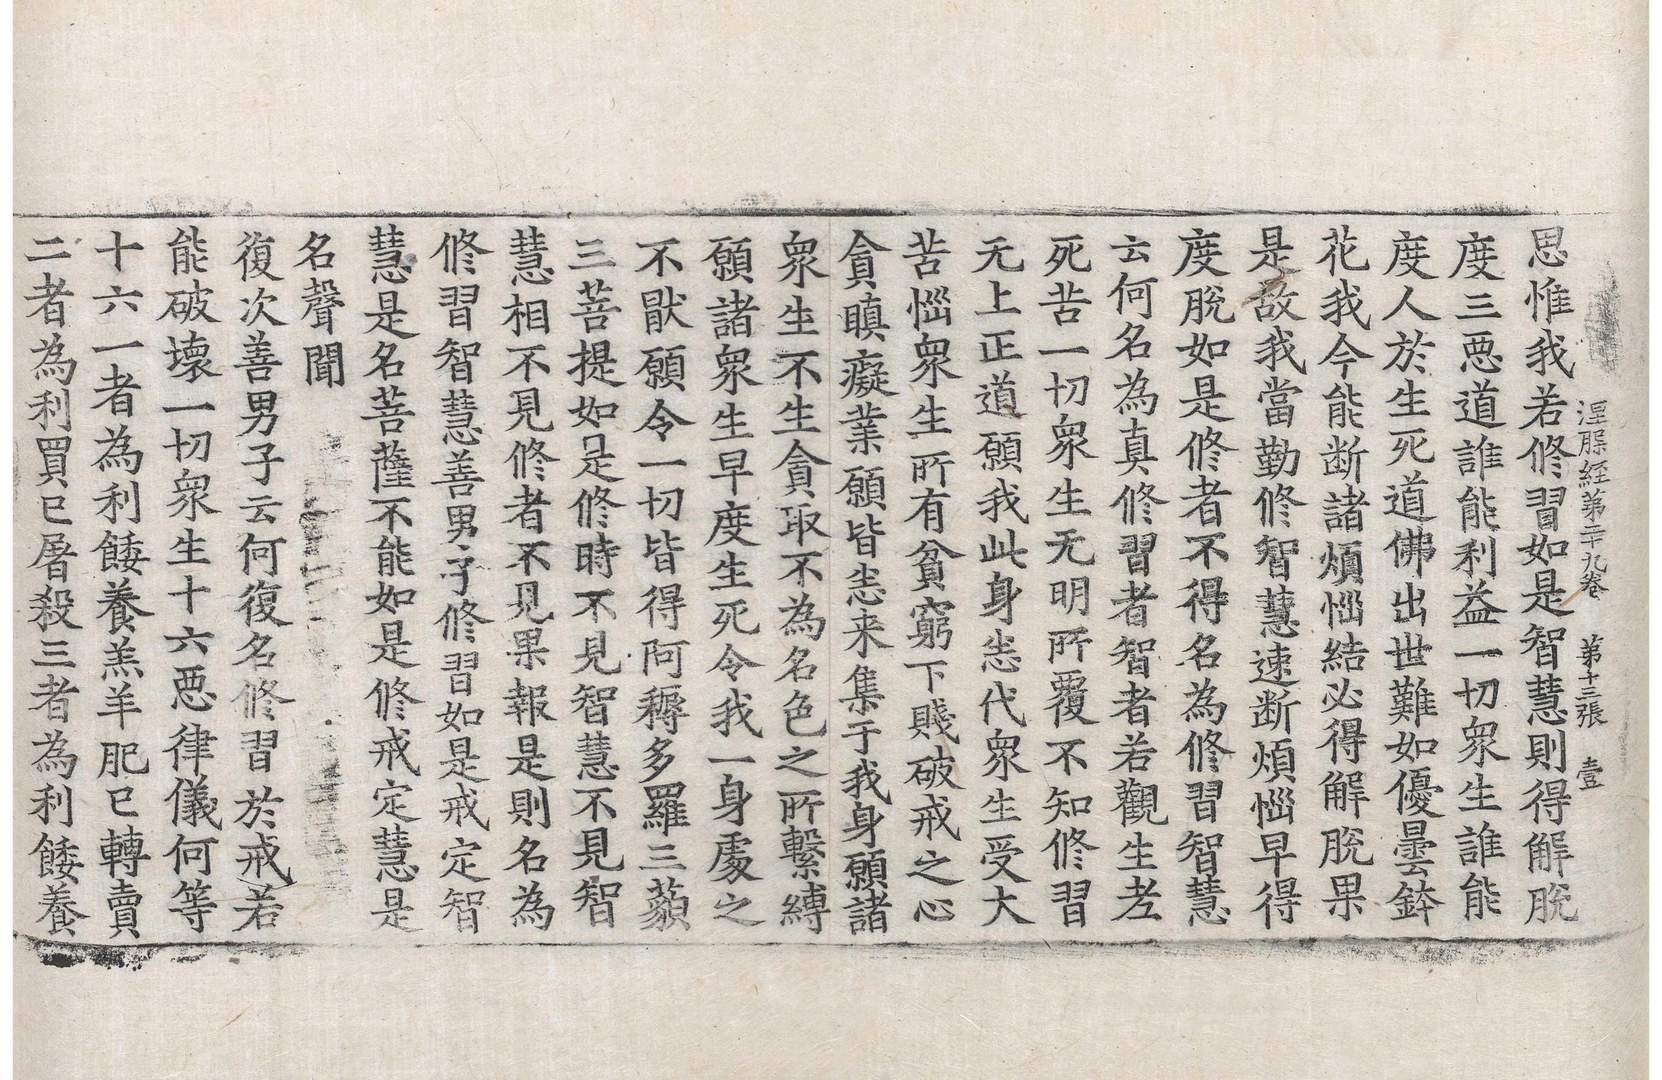 涅槃經第二十九卷 第十三張 壹
思惟我若修習如是智慧則得解脫
度三惡道誰能利益一切衆生誰能
度人於生死道佛出世難如優曇鉢
花我今能断諸煩惱結必得解脫果
是故我當勤修智慧速断煩惱早得
度脫如是修者不得名為修習智慧
云何名為真修習者智者若觀生老
死苦一切衆生无明所覆不知修習
无上正道願我此身悉代衆生受大
苦惱衆生所有貧窮下賤破戒之心
貪瞋癡業願皆悉来集于我身願諸
衆生不生貪取不為名色之所繫縛
願諸衆生早度生死令我一身處之
不猒願令一切皆得阿耨多羅三藐
三菩提如是修時不見智慧不見智
慧相不見修者不見果報是則名為
修習智慧善男子修習如是戒定智
慧是名菩薩不能如是修戒定慧是
名聲聞
復次善男子云何復名修習於戒若
能破壞一切衆生十六惡律儀何等
十六一者為利餧養羔羊肥已轉賣
二者為利買已屠殺三者為利餧養